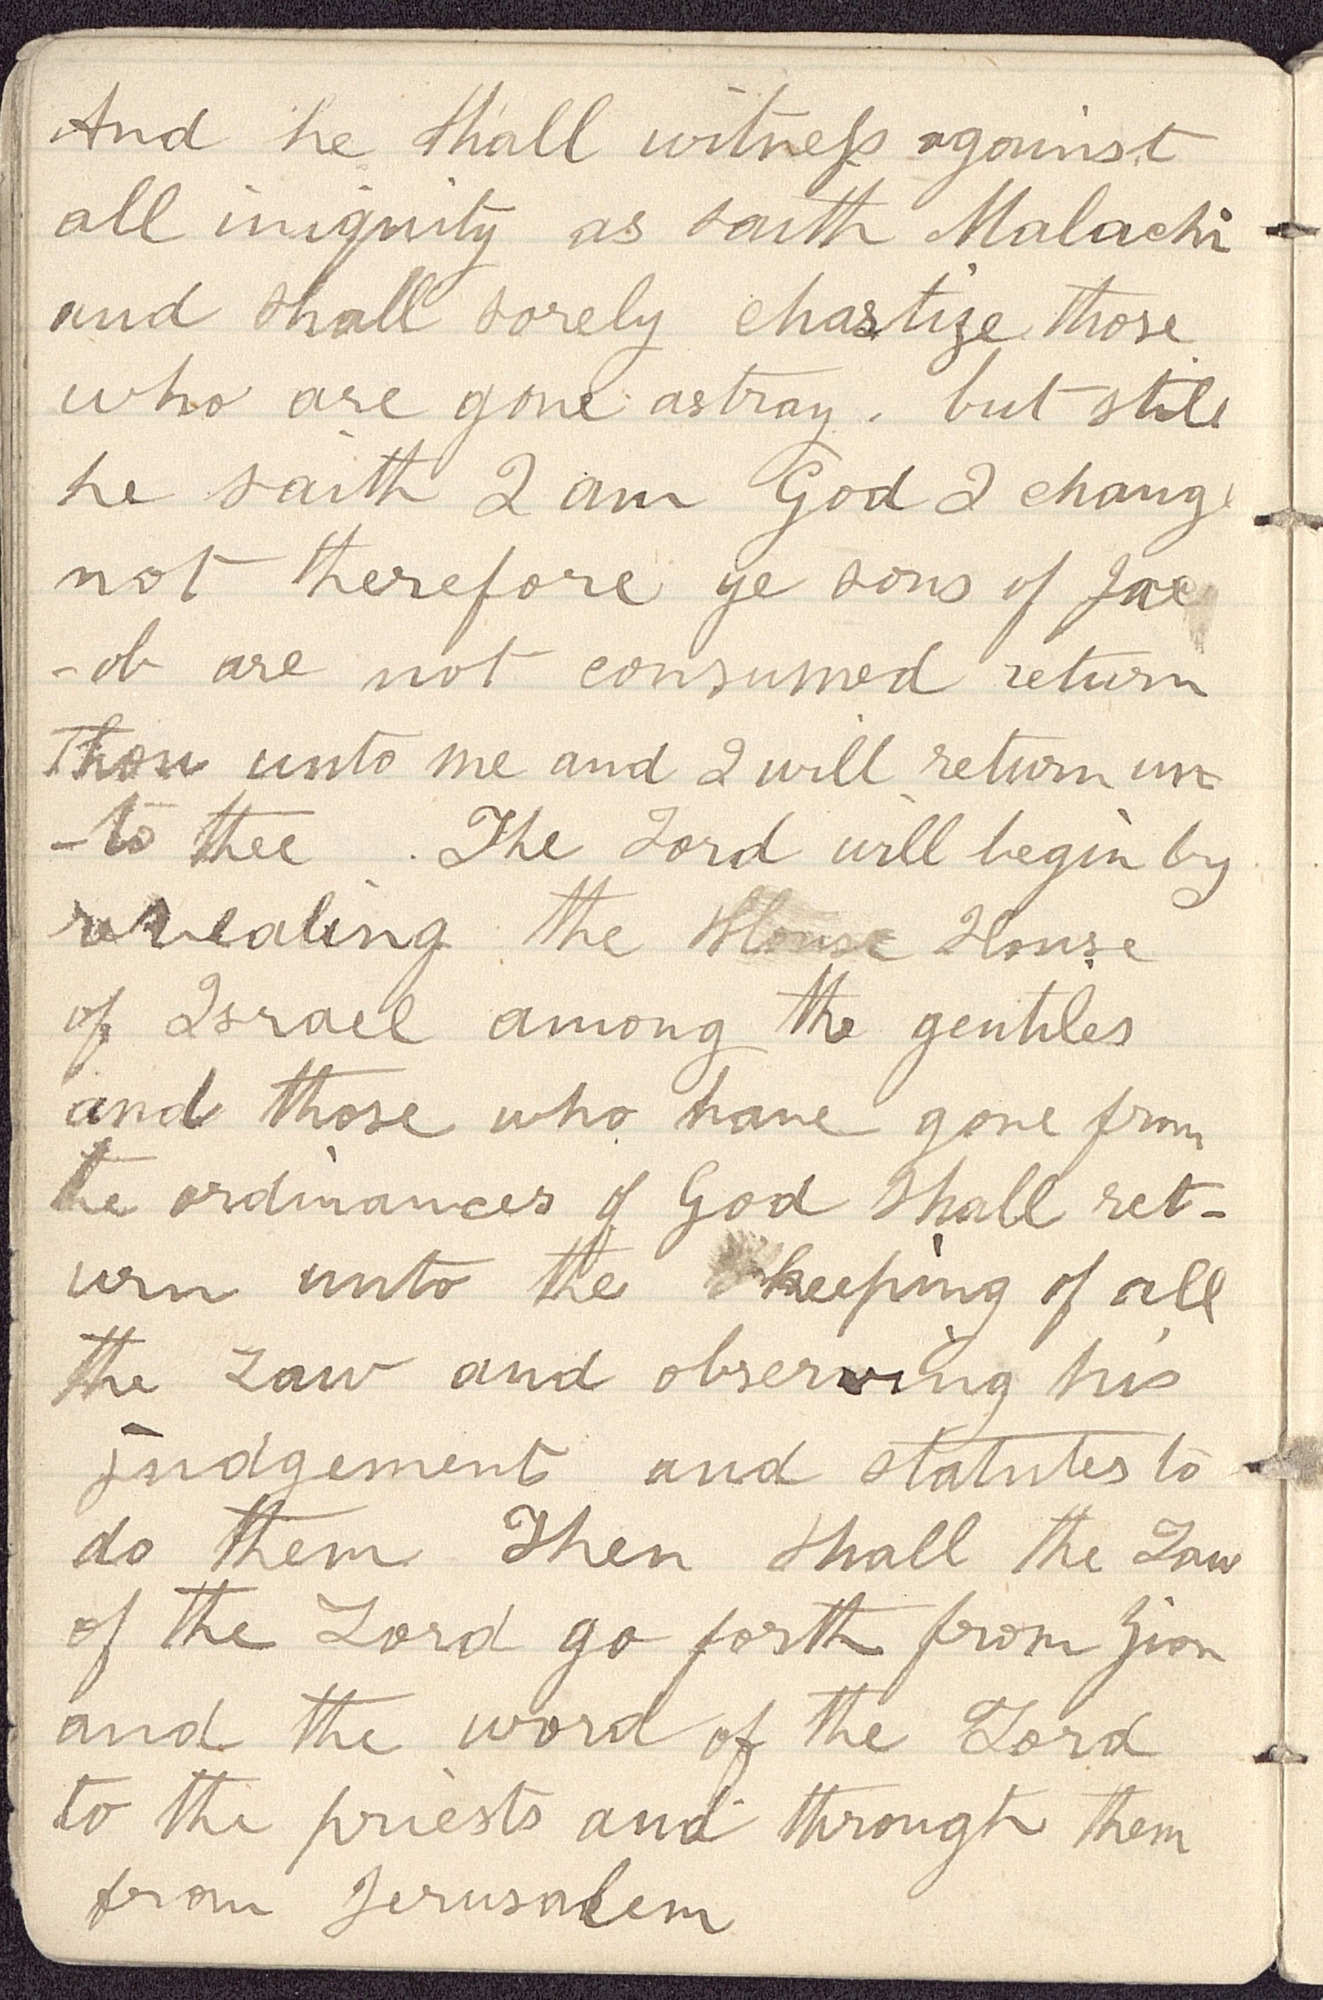 And he shall witness against
all iniquity as saith Malachi
and shall sorely chastize those
who are gone astray. but still
he saith I am God I change
not therefore ye sons of Jac
-ob are not consumed return
thou unto me and I will return un
-to thee. The Lord will begin by
revealing the House House
of Israel among the gentiles
and those who have gone from
the ordinances of God shall ret-
urn unto the keeping of all
the Law and observing his
judgement and statutes to
do them Then shall the Law
of the Lord go forth from Zion
and the word of the Lord
to the priests and through them
from Jerusalem